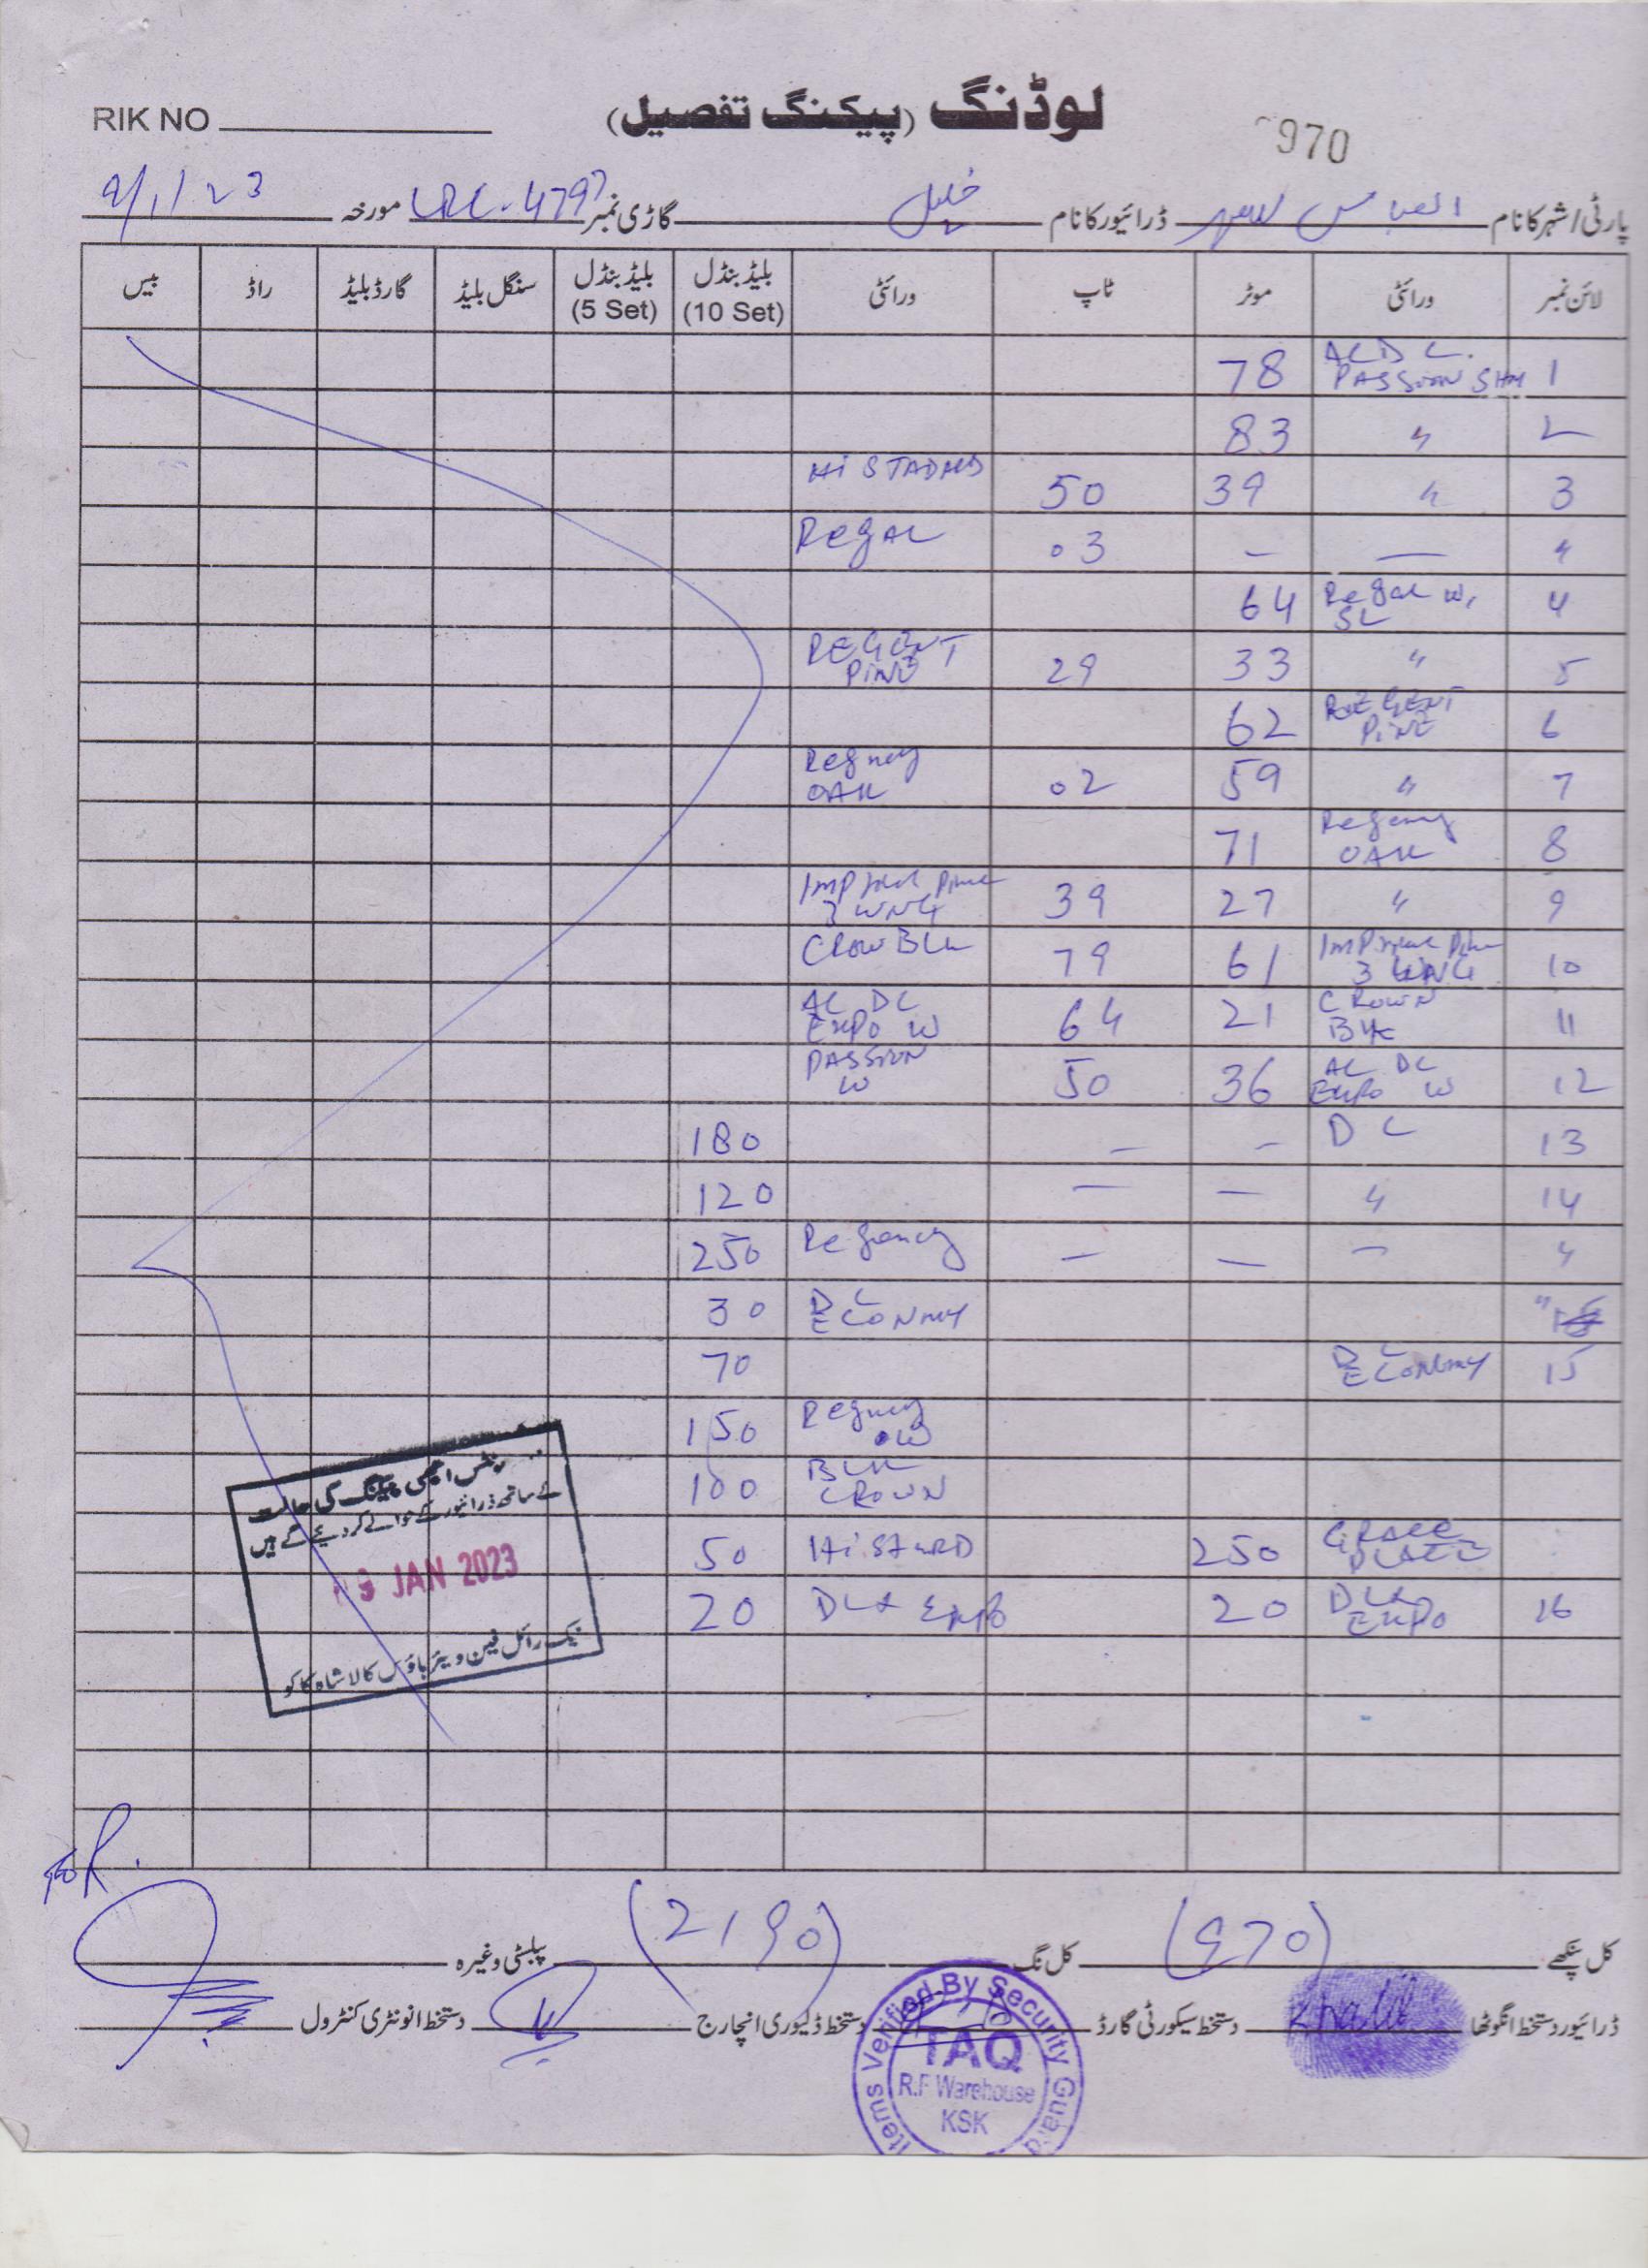 RIK NO
لوڈنگ (پیکنگ تفصیل)
970
پارٹی/شہر کا نام العباس
ڈرائیور کا نام خلیل
گاڑی نمبر 4797
مورخہ 9/1/23
لائن نمبر ورائٹی موٹر ٹاپ ورائٹی بلیڈ بنڈل (10 Set) بلیڈ بنڈل (5 Set) سنگل بلیڈ گارڈ بلیڈ راڈ بیس
1 AC DC PASSION 78
2 " 83
3 " 39 50
" — – 03 Regal
4 Regal W, SL 64
5 " 33 29 REGENT PINE
6 REGENT PINE 62
7 " 59 02 Regncy OAK
8 Regency OAK 71
9 " 27 39 3 WNG
10 3 WNG 61 79 CROW BLK
11 CROWN 21 64 AC DC EXPO W
12 AC DC EXPO W 36 50 PASSION W
13 DC – – 180
14 " – – 120
" – – – Regency 250
" DC ECONMY 30
15 DC ECONOMY 70
Regncy W 150
BLK CROWN 100
GRACE 250 50
16 EXPO 20 EXPO 20
نٹس اچھی پیکنگ کی حالت
کے ساتھ ڈرائیور کے حوالے کر دیئے گے ہیں
JAN 2023
رائل فین ویئر ہاؤس کالا شاہ کاکو
کل پنکھے (970)
کل نگ (2190)
پبلسٹی وغیرہ
ڈرائیور دستخط انگوٹھا Khalil
دستخط سیکورٹی گارڈ
دستخط ڈلیوری انچارج
دستخط انونٹری کنٹرول
Items Verified By Security Guard
TAQ
R.F Warehouse
KSK